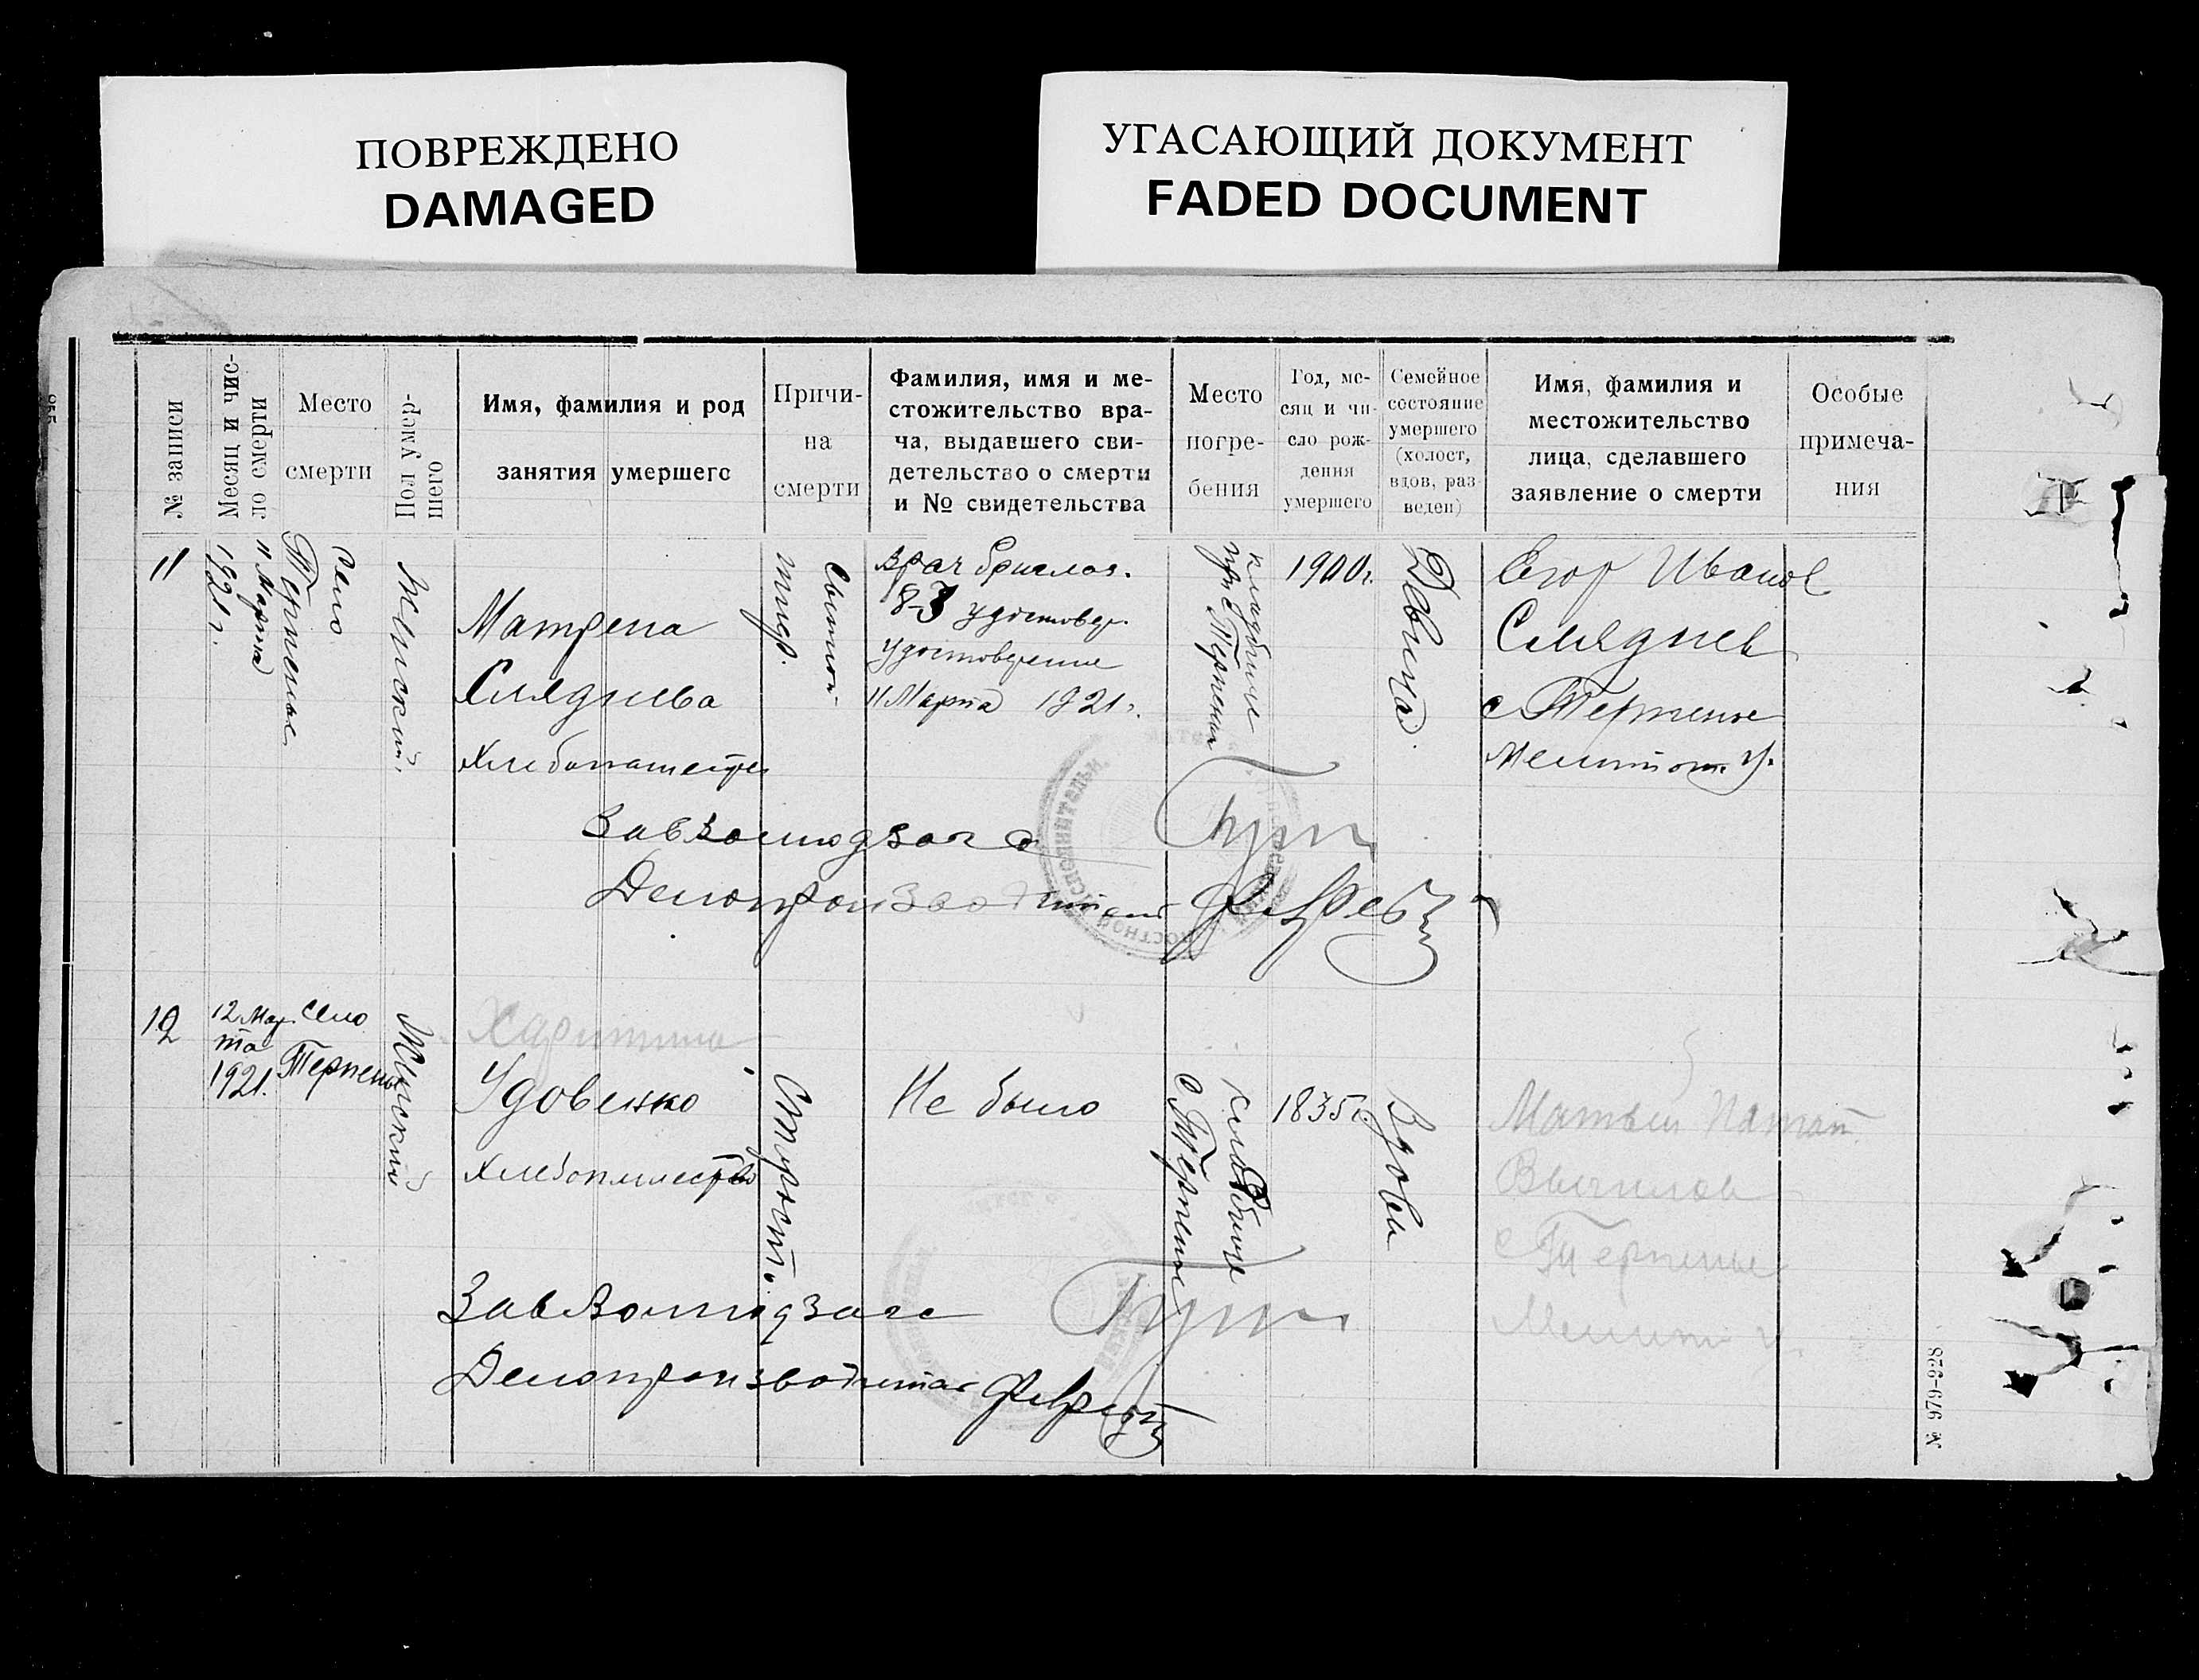 ПОВРЕЖДЕНО
DAMAGED
УГАСАЮЩИЙ ДОКУМЕНТ
FADED DOCUMENT
№ записи
Месяц и чис-
ло смерти
Место
смерти
Пол умер-
шего
Имя, фамилия и род
занятия умершего
Причи-
на
смерти
Фамилия, имя и ме-
стожительство вра-
ча, выдавшего сви-
детельство о смерти
и № свидетельства
Место
погре-
бения
Год, ме-
сяц и чи-
сло рож-
дения
умершего
Семейное
состояние
умершего
(холост,
вдов, раз
веден)
Имя, фамилия и
местожительство
лица, сделавшего
заявление о смерти
Особые
примеча-
ния
11
11 Марта
1921 г.
Село
Терпенье
Женский
Матрена
Хлебопашество
Сыпной
тиф
Врач
удостовер.
удостоверение
11 Марта 1921 г.
кладбище
Терпения
1900 г.
Девица
Егор Иванов
с Терпенье
Мелитоп. у.
Делопроизводитель
12
12 Мар
та
1921.
Село
Терпенье
Женский
Харитина
Удовенко
Хлебопашество
Старость.
Не было
Кладбище
с Терпенье
1835 г.
Вдова
Матвей
с Терпенье
Мелит у.
Делопроизводитель
№ 976-928